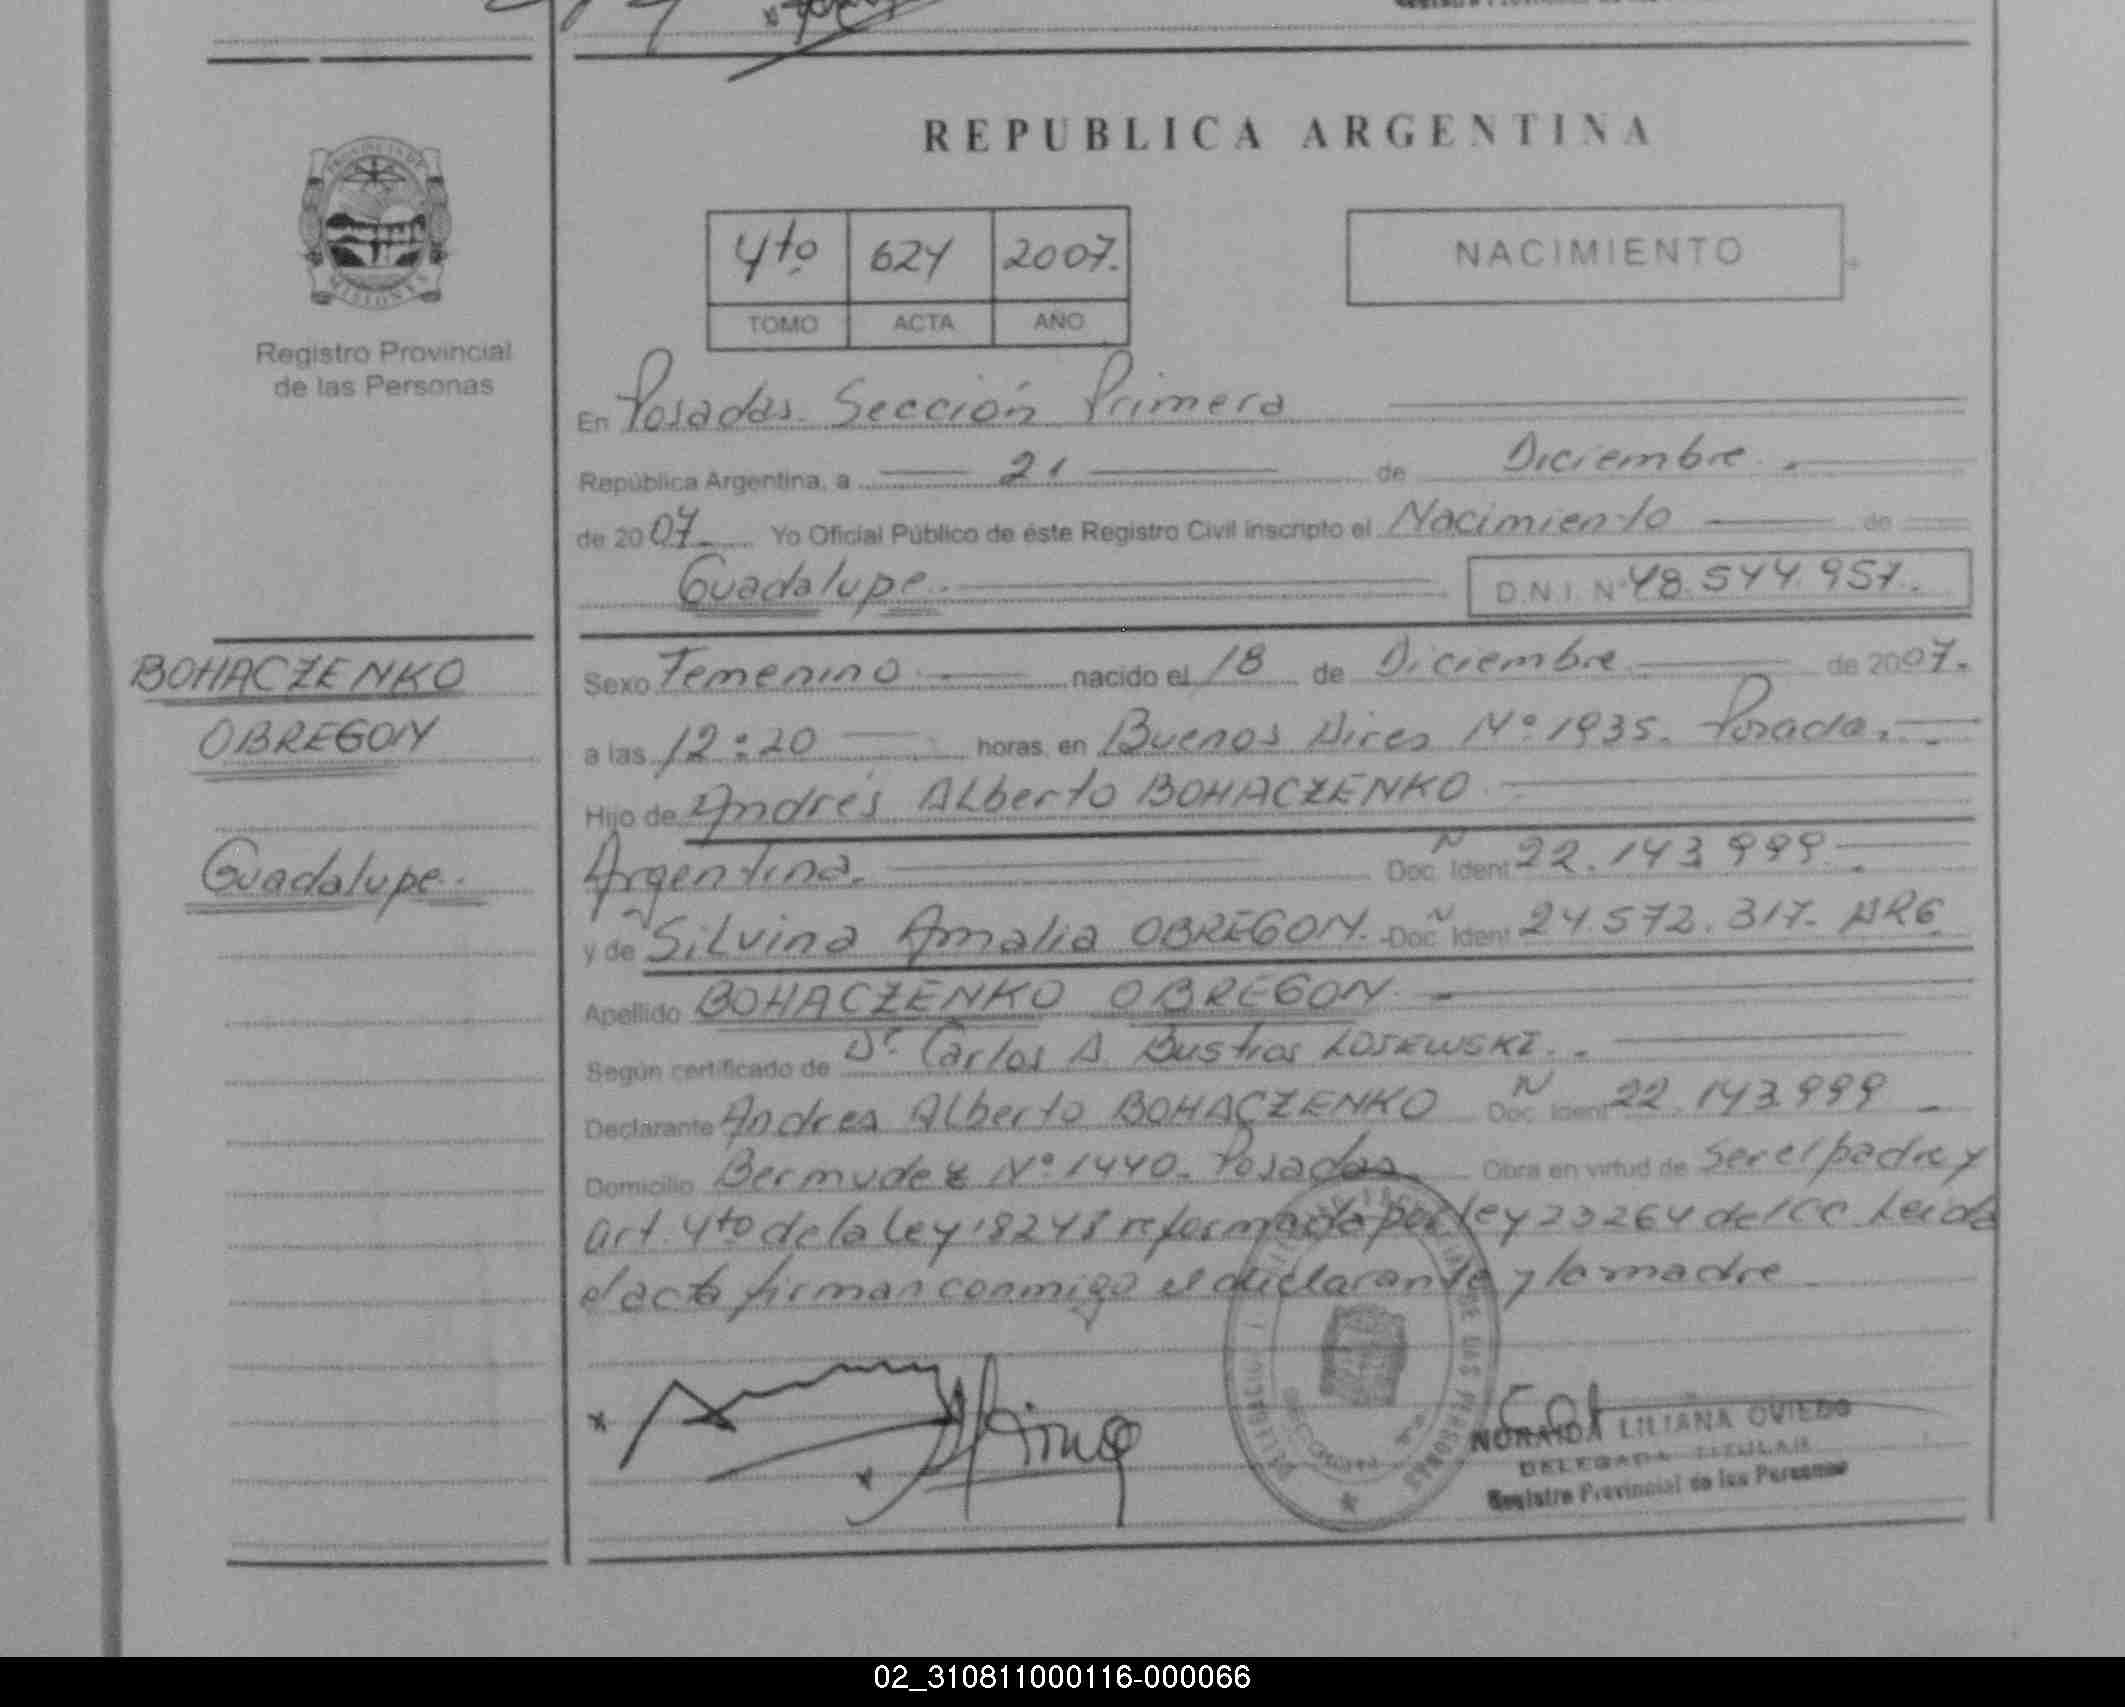 REPUBLICA ARGENTINA
PROVINCIA DE
MISIONES
Registro Provincial
de las Personas
4to 624 2007.
TOMO ACTA AÑO
NACIMIENTO
En Posadas. Sección Primera
República Argentina, a 21 de Diciembre.
de 2007. Yo Oficial Público de éste Registro Civil inscripto el Nacimiento de
Guadalupe. D.N.I. Nº 48.544.957.
BOHACZENKO
OBREGON
Guadalupe.
Sexo Femenino nacido el 18 de Diciembre de 2007.
a las 12:20 horas, en Buenos Aires Nº 1935. Posadas.
Hijo de Andrés Alberto BOHACZENKO
Argentina. Doc. Ident 22.143.999.
y de Silvina Amalia OBREGON. Doc. Ident 24.572.317. ARG.
Apellido BOHACZENKO OBREGON
Según certificado de Dr. Carlos A. Bustos
Declarante Andres Alberto BOHACZENKO Doc. Ident 22.143.999
Domicilio Bermudez Nº 1440. Posadas. Obra en virtud de ser el padre y
art. 4to de la Ley 18248 reformada por ley 23264 del CC. Leida
el acta firman conmigo el declarante y la madre
NORAIDA LILIANA OVIEDO
DELEGADA TITULAR
Registro Provincial de las Personas
02_310811000116-000066